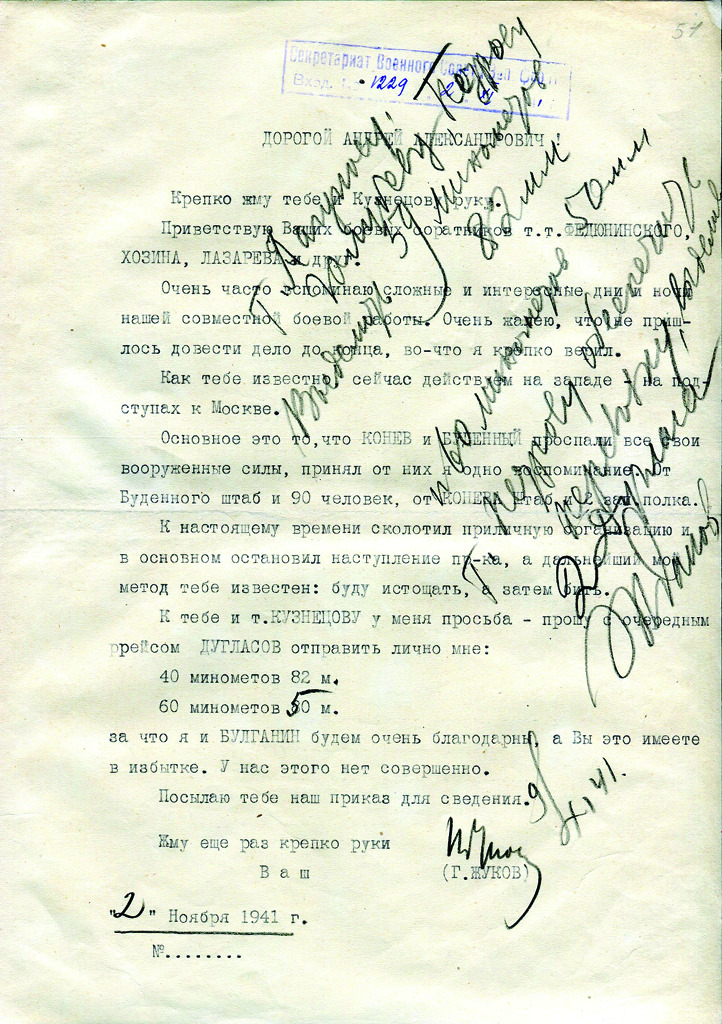 51
Секретариат Военного
Вход. 1229
ДОРОГОЙ АНДРЕЙ АЛЕКСАНДРОВИЧ!
Крепко жму тебе и Кузнецову руку.
Приветствую Ваших боевых соратников т.т. ФЕДЮНИНСКОГО,
ХОЗИНА, ЛАЗАРЕВА и др.
Очень часто вспоминаю сложные и интересные дни и ночи
нашей совместной боевой работы. Очень жалею, что не приш-
лось довести дело до конца, во-что я крепко верил.
Как тебе известно сейчас действуем на западе - на под-
ступах к Москве.
Основное это то,что КОНЕВ и БУДЕННЫЙ проспали все свои
вооруженные силы, принял от них я одно воспоминание. От
Буденного штаб и 90 человек, от КОНЕВА штаб и 2 зап.полка.
К настоящему времени сколотил приличную организацию и
в основном остановил наступление пр-ка, а дальнейший мой
метод тебе известен: буду истощать, а затем бить.
К тебе и т.КУЗНЕЦОВУ у меня просьба - прошу с очередным
ррейсом ДУГЛАСОВ отправить лично мне:
40 минометов 82 м.
60 минометов 50 м.
за что я и БУЛГАНИН будем очень благодарны, а Вы это имеете
в избытке. У нас этого нет совершенно.
Посылаю тебе наш приказ для сведения.
Жму еще раз крепко руки
Ваш
(Г.ЖУКОВ)
"2" Ноября 1941 г.
№........
т. Лагунову
Выделить 50 минометов
82 мм
и 60 минометов 50 мм
Т. обеспечить
перевозку
Жданов
9/XI 41.